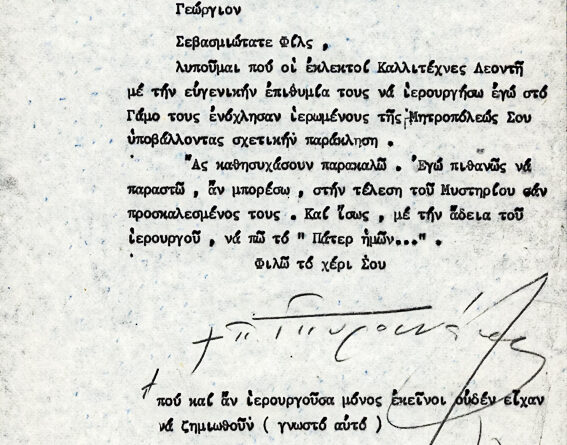 Γεώργιον
Σεβασμιώτατε Φίλε ,
λυποῦμαι πού οἱ ἐκλεκτοί Καλλιτέχνες Λεοντῆ
μέ τήν εὐγενικήν ἐπιθυμία τους νά ἱερουργήσω ἐγώ στό
Γάμο τους ἐνόχλησαν ἱερωμένους τῆς Μητροπόλεώς Σου
ὑποβάλλοντας σχετικήν παράκληση .
Ἄς καθησυχάσουν παρακαλῶ . Ἐγώ πιθανῶς νά
παραστῶ , ἄν μπορέσω , στήν τέλεση τοῦ Μυστηρίου σάν
προσκαλεσμένος τους . Καί ἴσως , μέ τήν ἄδεια τοῦ
ἱερουργοῦ , νά πῶ τό " Πάτερ ἡμῶν..." .
Φιλῶ τό χέρι Σου
πού καί ἄν ἱερουργοῦσα μόνος ἐκεῖνοι οὐδέν εἶχαν
νά ζημιωθοῦν ( γνωστό αὐτό )